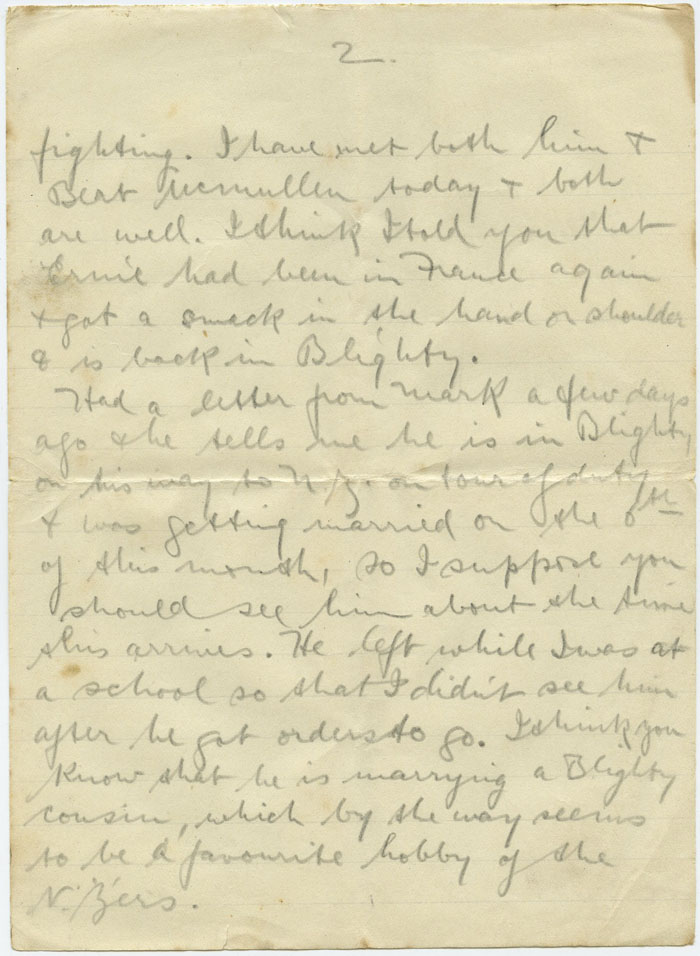 2.
fighting. I have met both him &
Bert McMullen today & both
are well. I think I told you that
Ernie had been in France again
& got a smack in the hand or shoulder
& is back in Blighty.
Had a letter from Mark a few days
ago & he tells me he is in Blighty
on his way to N.Z. on tour of duty
& was getting married on the 6th
of this month, so I suppose you
should see him about the time
this arrives. He left while I was at
a school so that I didn't see him
after he got orders to go. I think you
know that he is marrying a Blighty
cousin, which by the way seems
to be a favourite hobby of the
N.Zers.